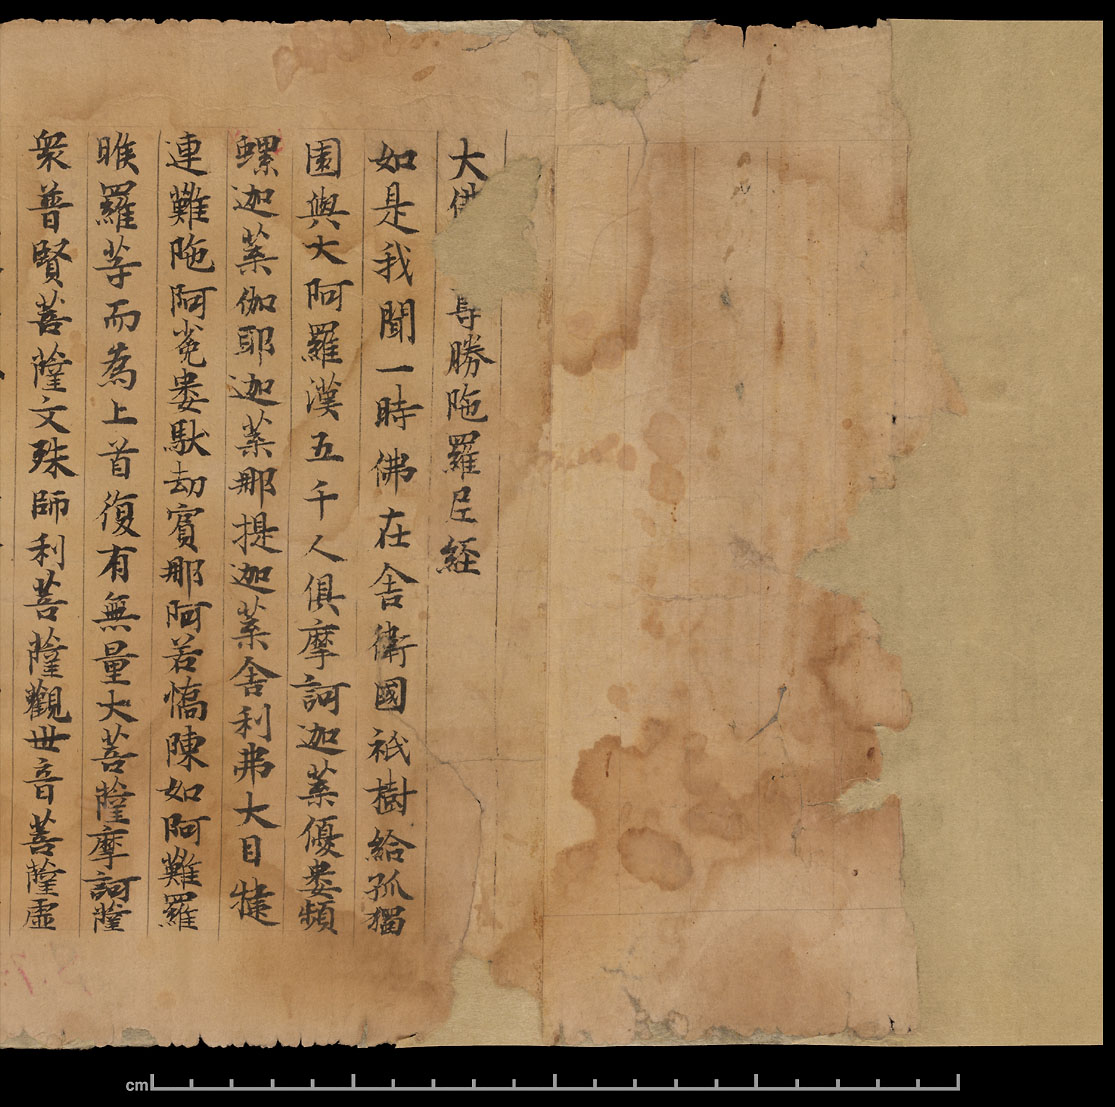 大佛尊勝陁羅尼経
如是我聞一時佛在舎衛國祇樹給孤獨
園與大阿羅漢五千人俱摩訶迦葉優婁頻
螺迦葉伽耶迦葉那提迦葉舎利弗大目犍
連難陁阿㝹婁馱劫賓那阿若憍陳如阿難羅
睺羅䓁而為上首復有無量大菩薩摩訶薩
衆普賢菩薩文殊師利菩薩觀世音菩薩虛
cm